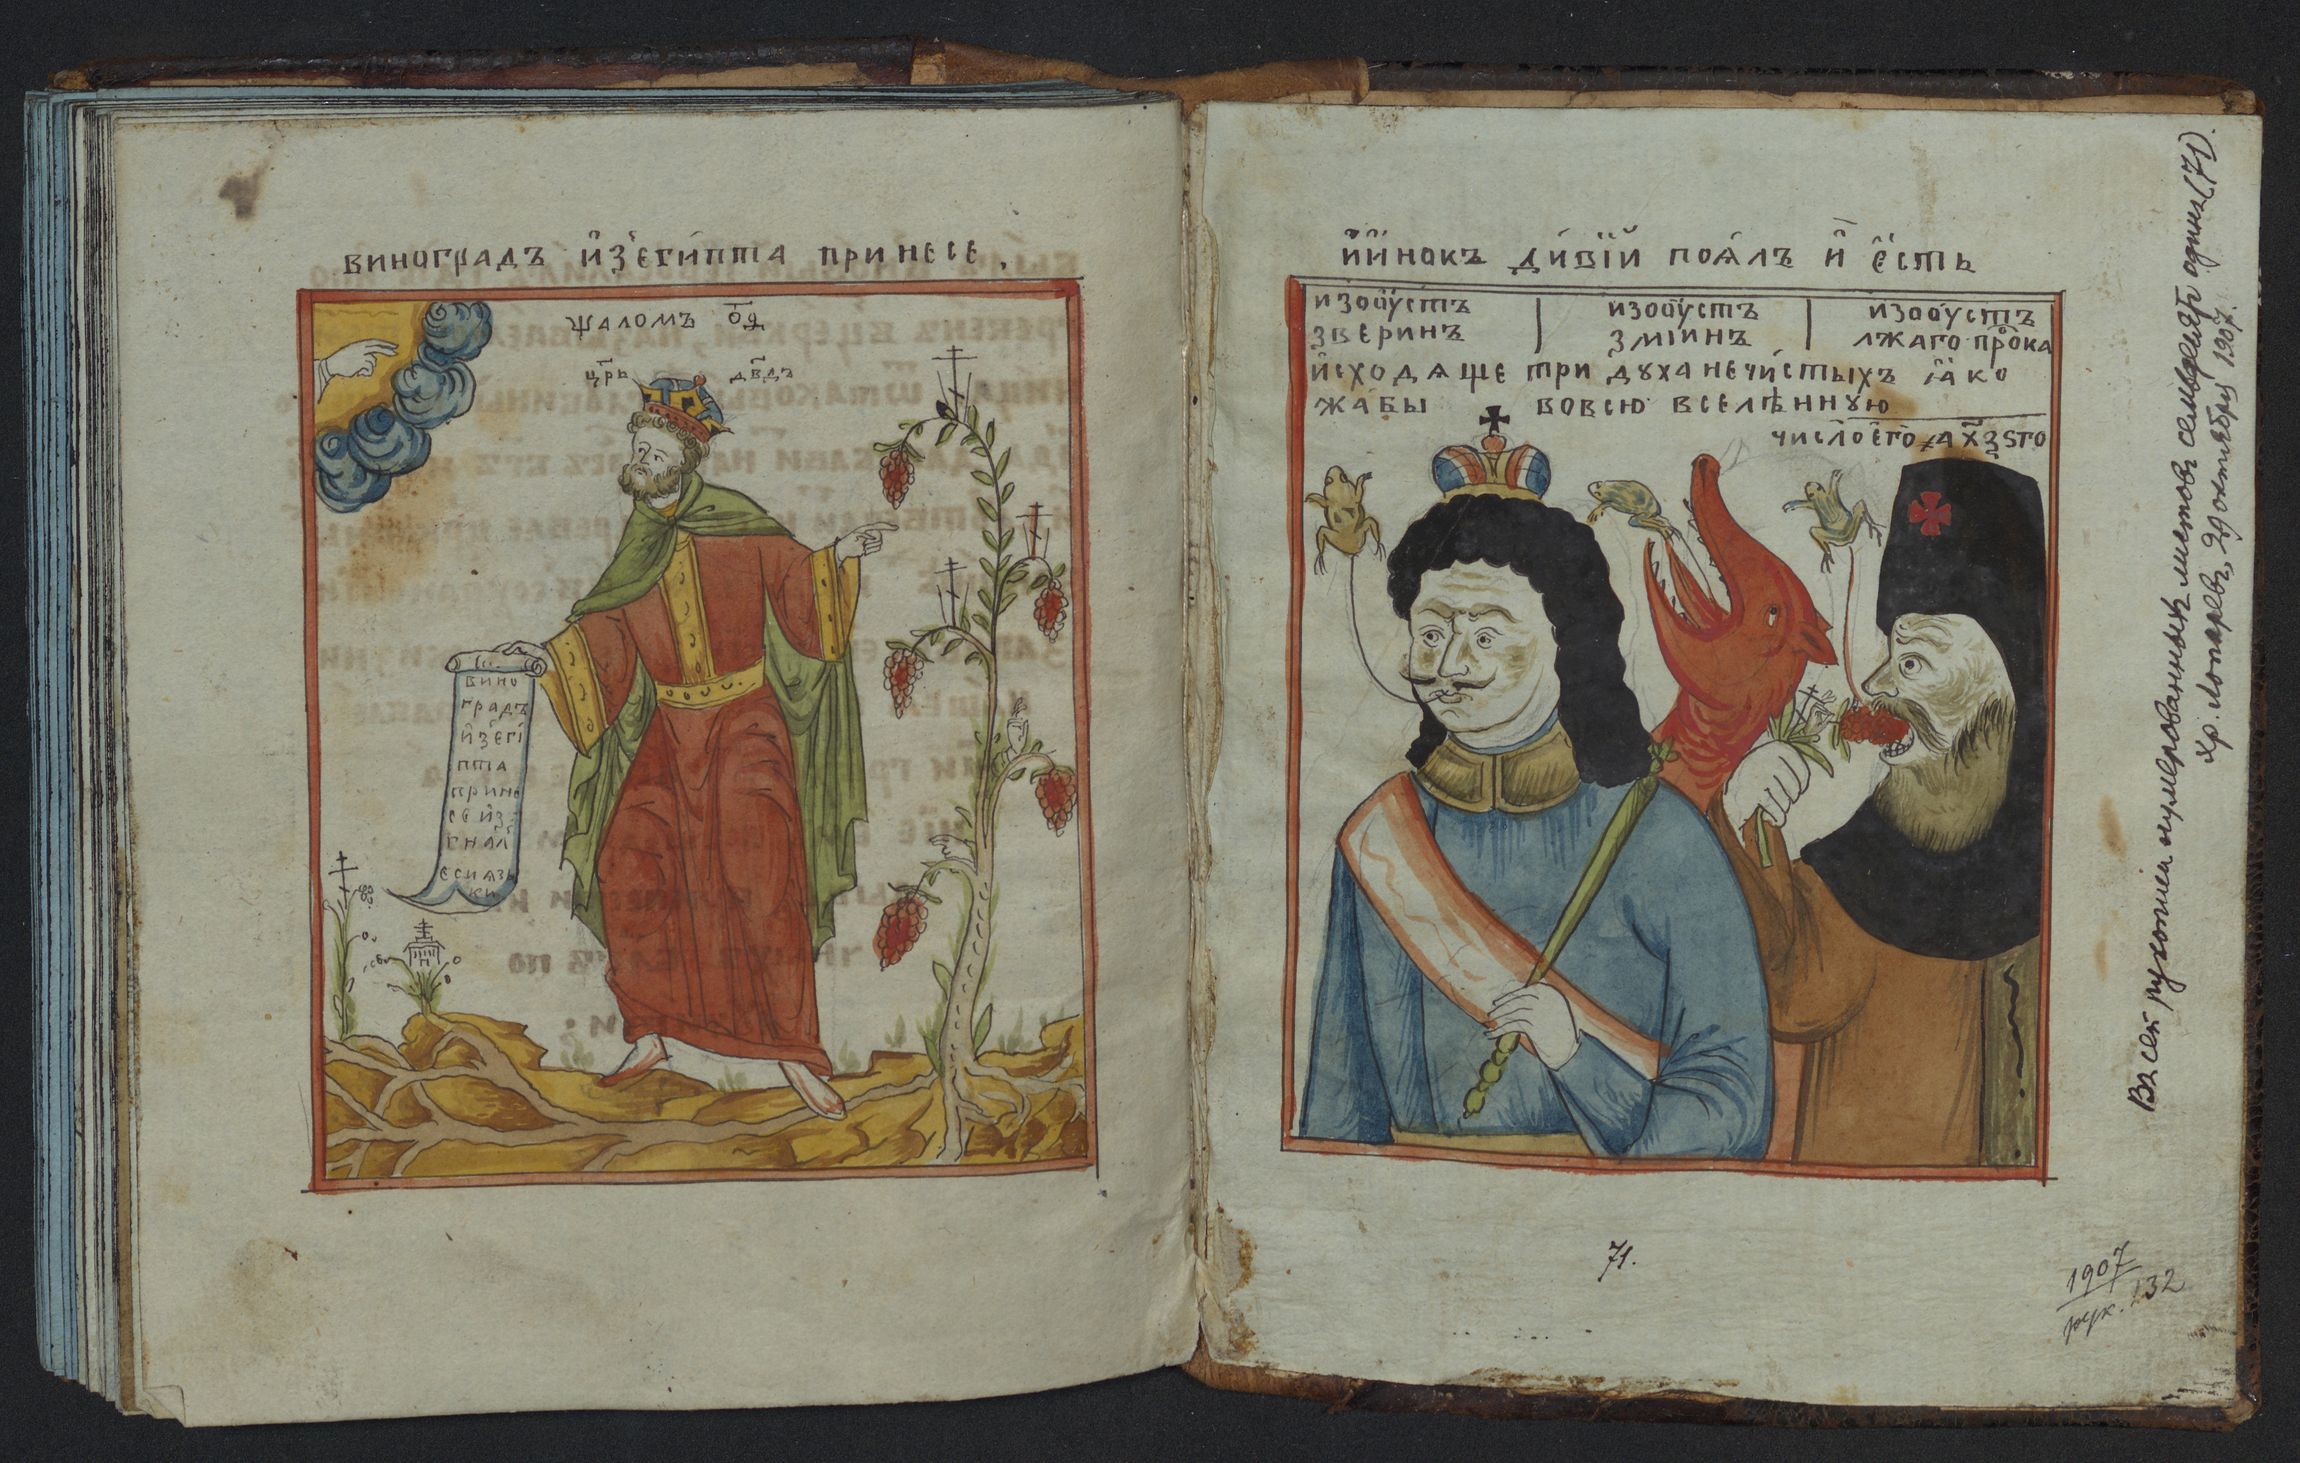 виноградъ и҆з̾ еги́пта принесе .
ѱаломъ о҃ѳ
цр҃ь дв҃дъ
вино
градъ
и҆з̾егі
пта
прине
се и҆з
гналъ
еси ꙗзы
ки
и҆и҆нокъ ди́вїй поѧ́лъ и҆ є҆сть
изоꙋстъ
зверинъ
изоꙋстъ
зміинъ
изоꙋстъ
лжаго прⷪ҇ка
и҆сходѧще три дꙋха нечи́стыхъ ꙗ҆ко
жа́бы вовсю вселѣннꙋю
число его҆ ҂ах҃ѯѕго
Въ сей рукописи нумерованныхъ листовъ семьдесятъ одинъ (71).
Хр. Лопаревъ, 29 октября 1907.
71.
1907
рук. 132